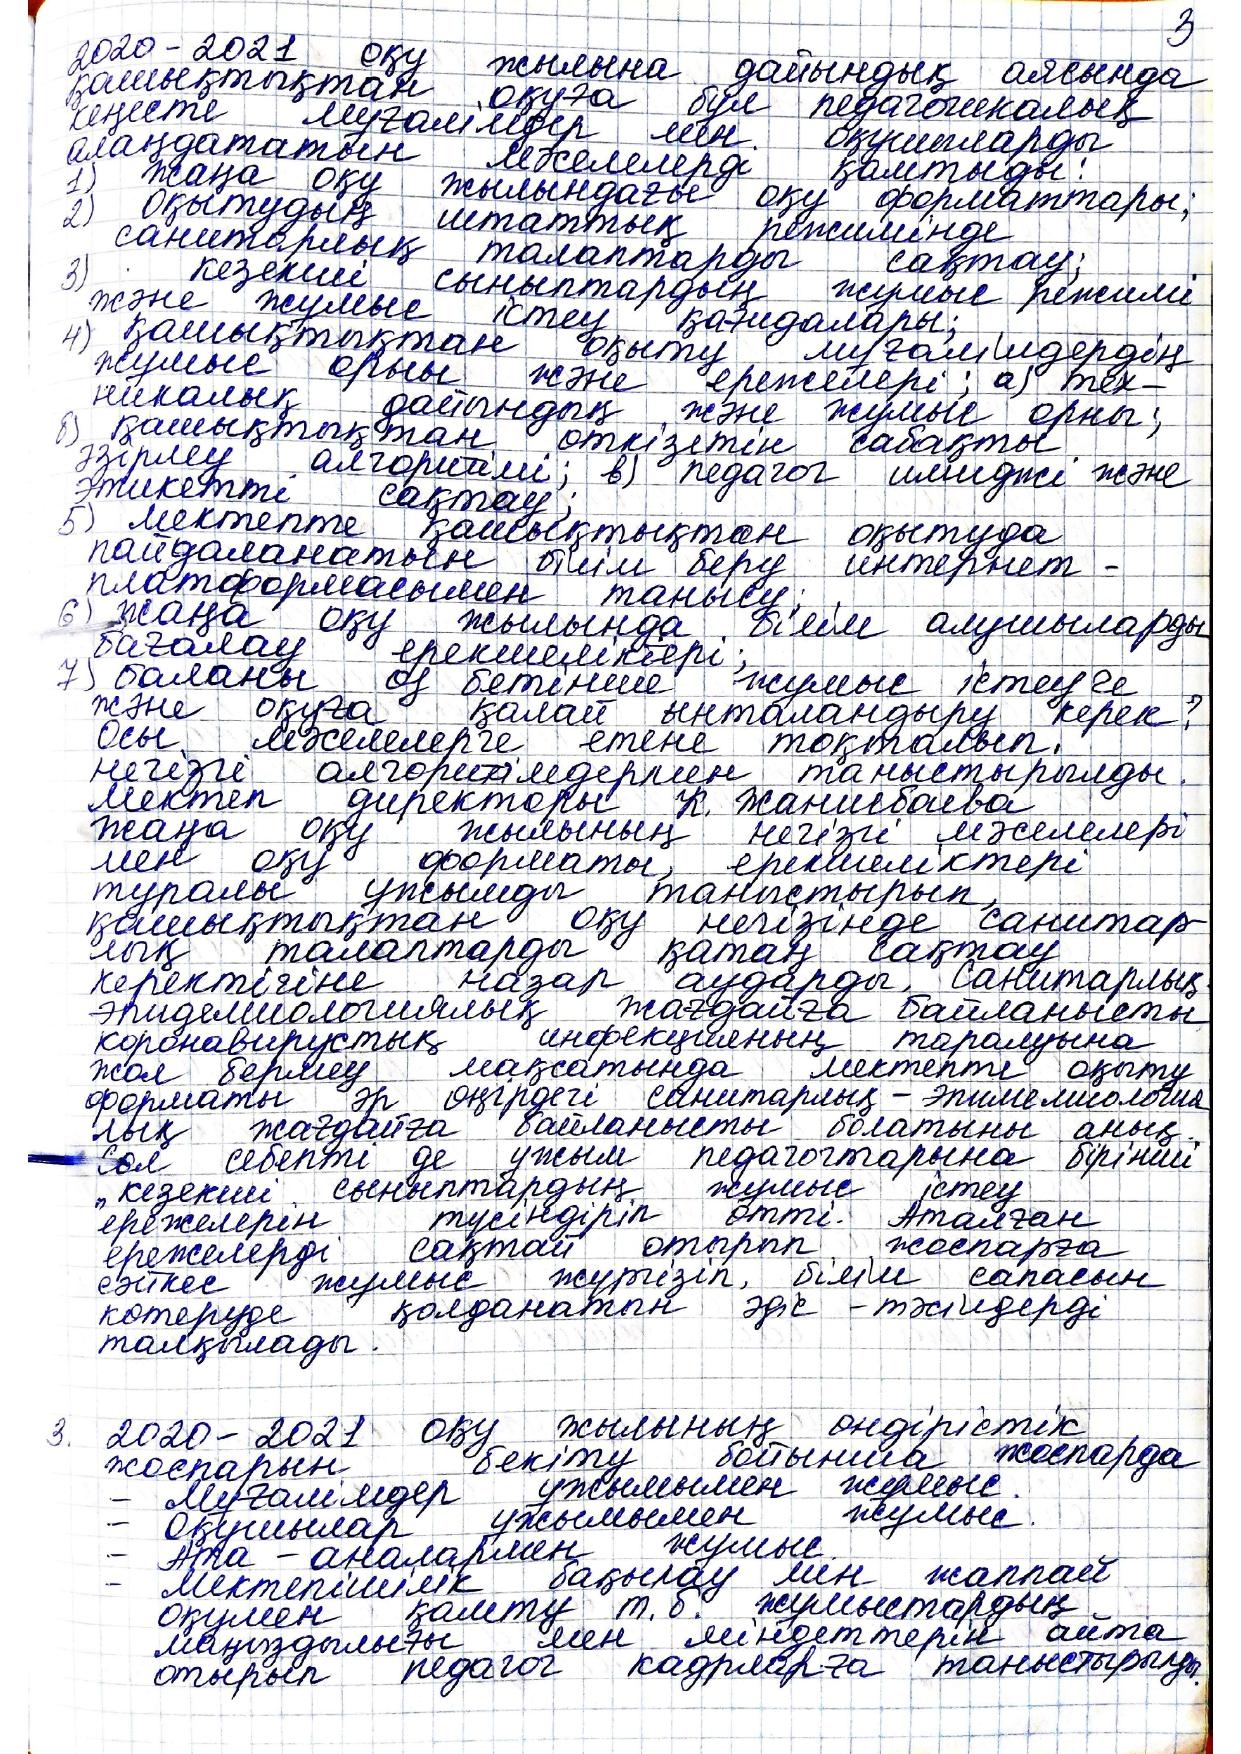 3
2020-2021 оқу жылына дайындық аясында
қашықтықтан оқуға бұл педагогикалық
кеңесте мұғалімдер мен оқушыларды
алаңдататын мәселелерді қамтыды:
1) Жаңа оқу жылындағы оқу форматтары;
2) Оқытудың штаттық режимінде
санитарлық талаптарды сақтау;
3) Кезекші сыныптардың жұмыс режимі
және жұмыс істеу қағидалары;
4) Қашықтықтан оқыту мұғалімдердің
жұмыс орны және ережелері; а) тех-
никалық дайындық және жұмыс орны;
б) Қашықтықтан өткізетін сабақты
әзірлеу алгоритімі; в) педагог имиджі және
этикетті сақтау;
5) Мектепте қашықтықтан оқытуда
пайдаланатын білім беру интернет-
платформасымен танысу;
6) Жаңа оқу жылында білім алушыларды
бағалау ерекшеліктері;
7) Баланы өз бетінше жұмыс істеуге
және оқуға қалай ынталандыру керек?
Осы мәселелерге етене тоқталып,
негізгі алгоритімдермен таныстырылды.
Мектеп директоры К. Жанисбаева
жаңа оқу жылының негізгі мәселелері
мен оқу форматы, ерекшеліктері
туралы ұжымды таныстырып,
қашықтықтан оқу негізінде санитар-
лық талаптарды қатаң сақтау
керектігіне назар аударды. Санитарлық-
эпидемиологиялық жағдайға байланысты
коронавирустық инфекцияның таралуына
жол бермеу мақсатында мектепте оқыту
форматы әр өңірдегі санитарлық-эпимемиология
лық жағдайға байланысты болатыны анық.
Сол себепті де ұжым педагогтарына бірінші
„кезекші сыныптардың жұмыс істеу
ережелерін түсіндіріп өтті. Аталған
ережелерді сақтай отырып, жоспарға
сәйкес жұмыс жүргізіп, білім сапасын
көтеруде қолданатын әдіс-тәсілдерді
талқылады.
3. 2020-2021 оқу жылының өндірістік
жоспарын бекіту бойынша жоспарда
- Мұғалімдер ұжымымен жұмыс.
- Оқушылар ұжымымен жұмыс.
- Ата-аналармен жұмыс
- Мектепішілік бақылау мен жаппай
оқумен қамту т.б. жұмыстардың
маңыздылығы мен міндеттерін айта
отырып педагог кадрларға таныстырылды.